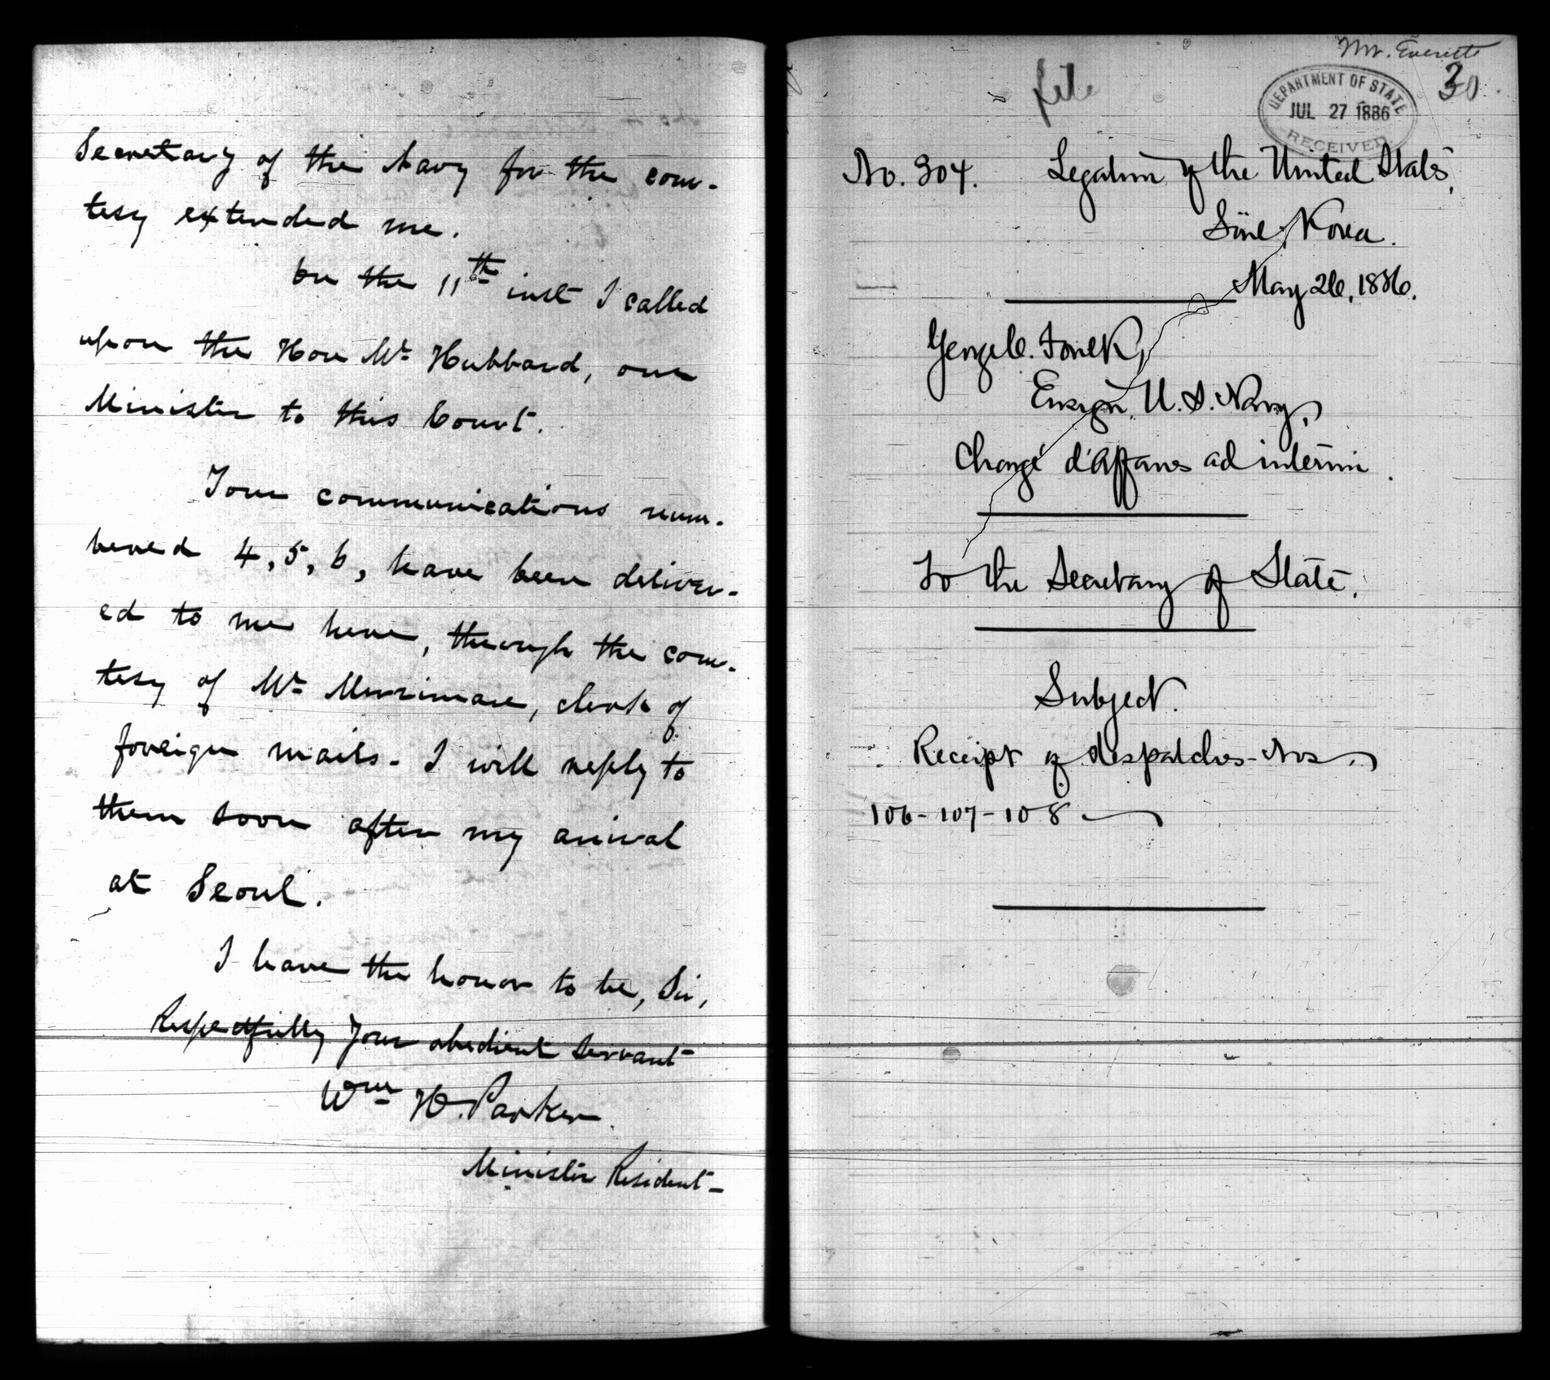 Secretary of the Navy for the cour-
tesy extended me.
On the 11th inst I called
upon the Hon Mr Hubbard, our
Minister to this Court.
Your communications num-
bered 4, 5, 6, have been deliver-
ed to me here, through the cour-
tesy of Mr Merriman, clerk of
foreign mails. I will reply to
them soon after my arrival
at Seoul.
I have the honor to be, Sir,
Respectfully Your obedient servant
Wm H. Parker.
Minister Resident-
Mr. Everett
file
30.
DEPARTMENT OF STATE
JUL 27 1886
RECEIVED
No. 304. Legation of the United States,
Söul, Korea.
May 26, 1886.
George C. Foulk,
Ensign, U. S. Navy,
Chargé d'Affaires ad interim.
To the Secretary of State.
Subject.
Receipt of despatches - Nos.
106-107-108